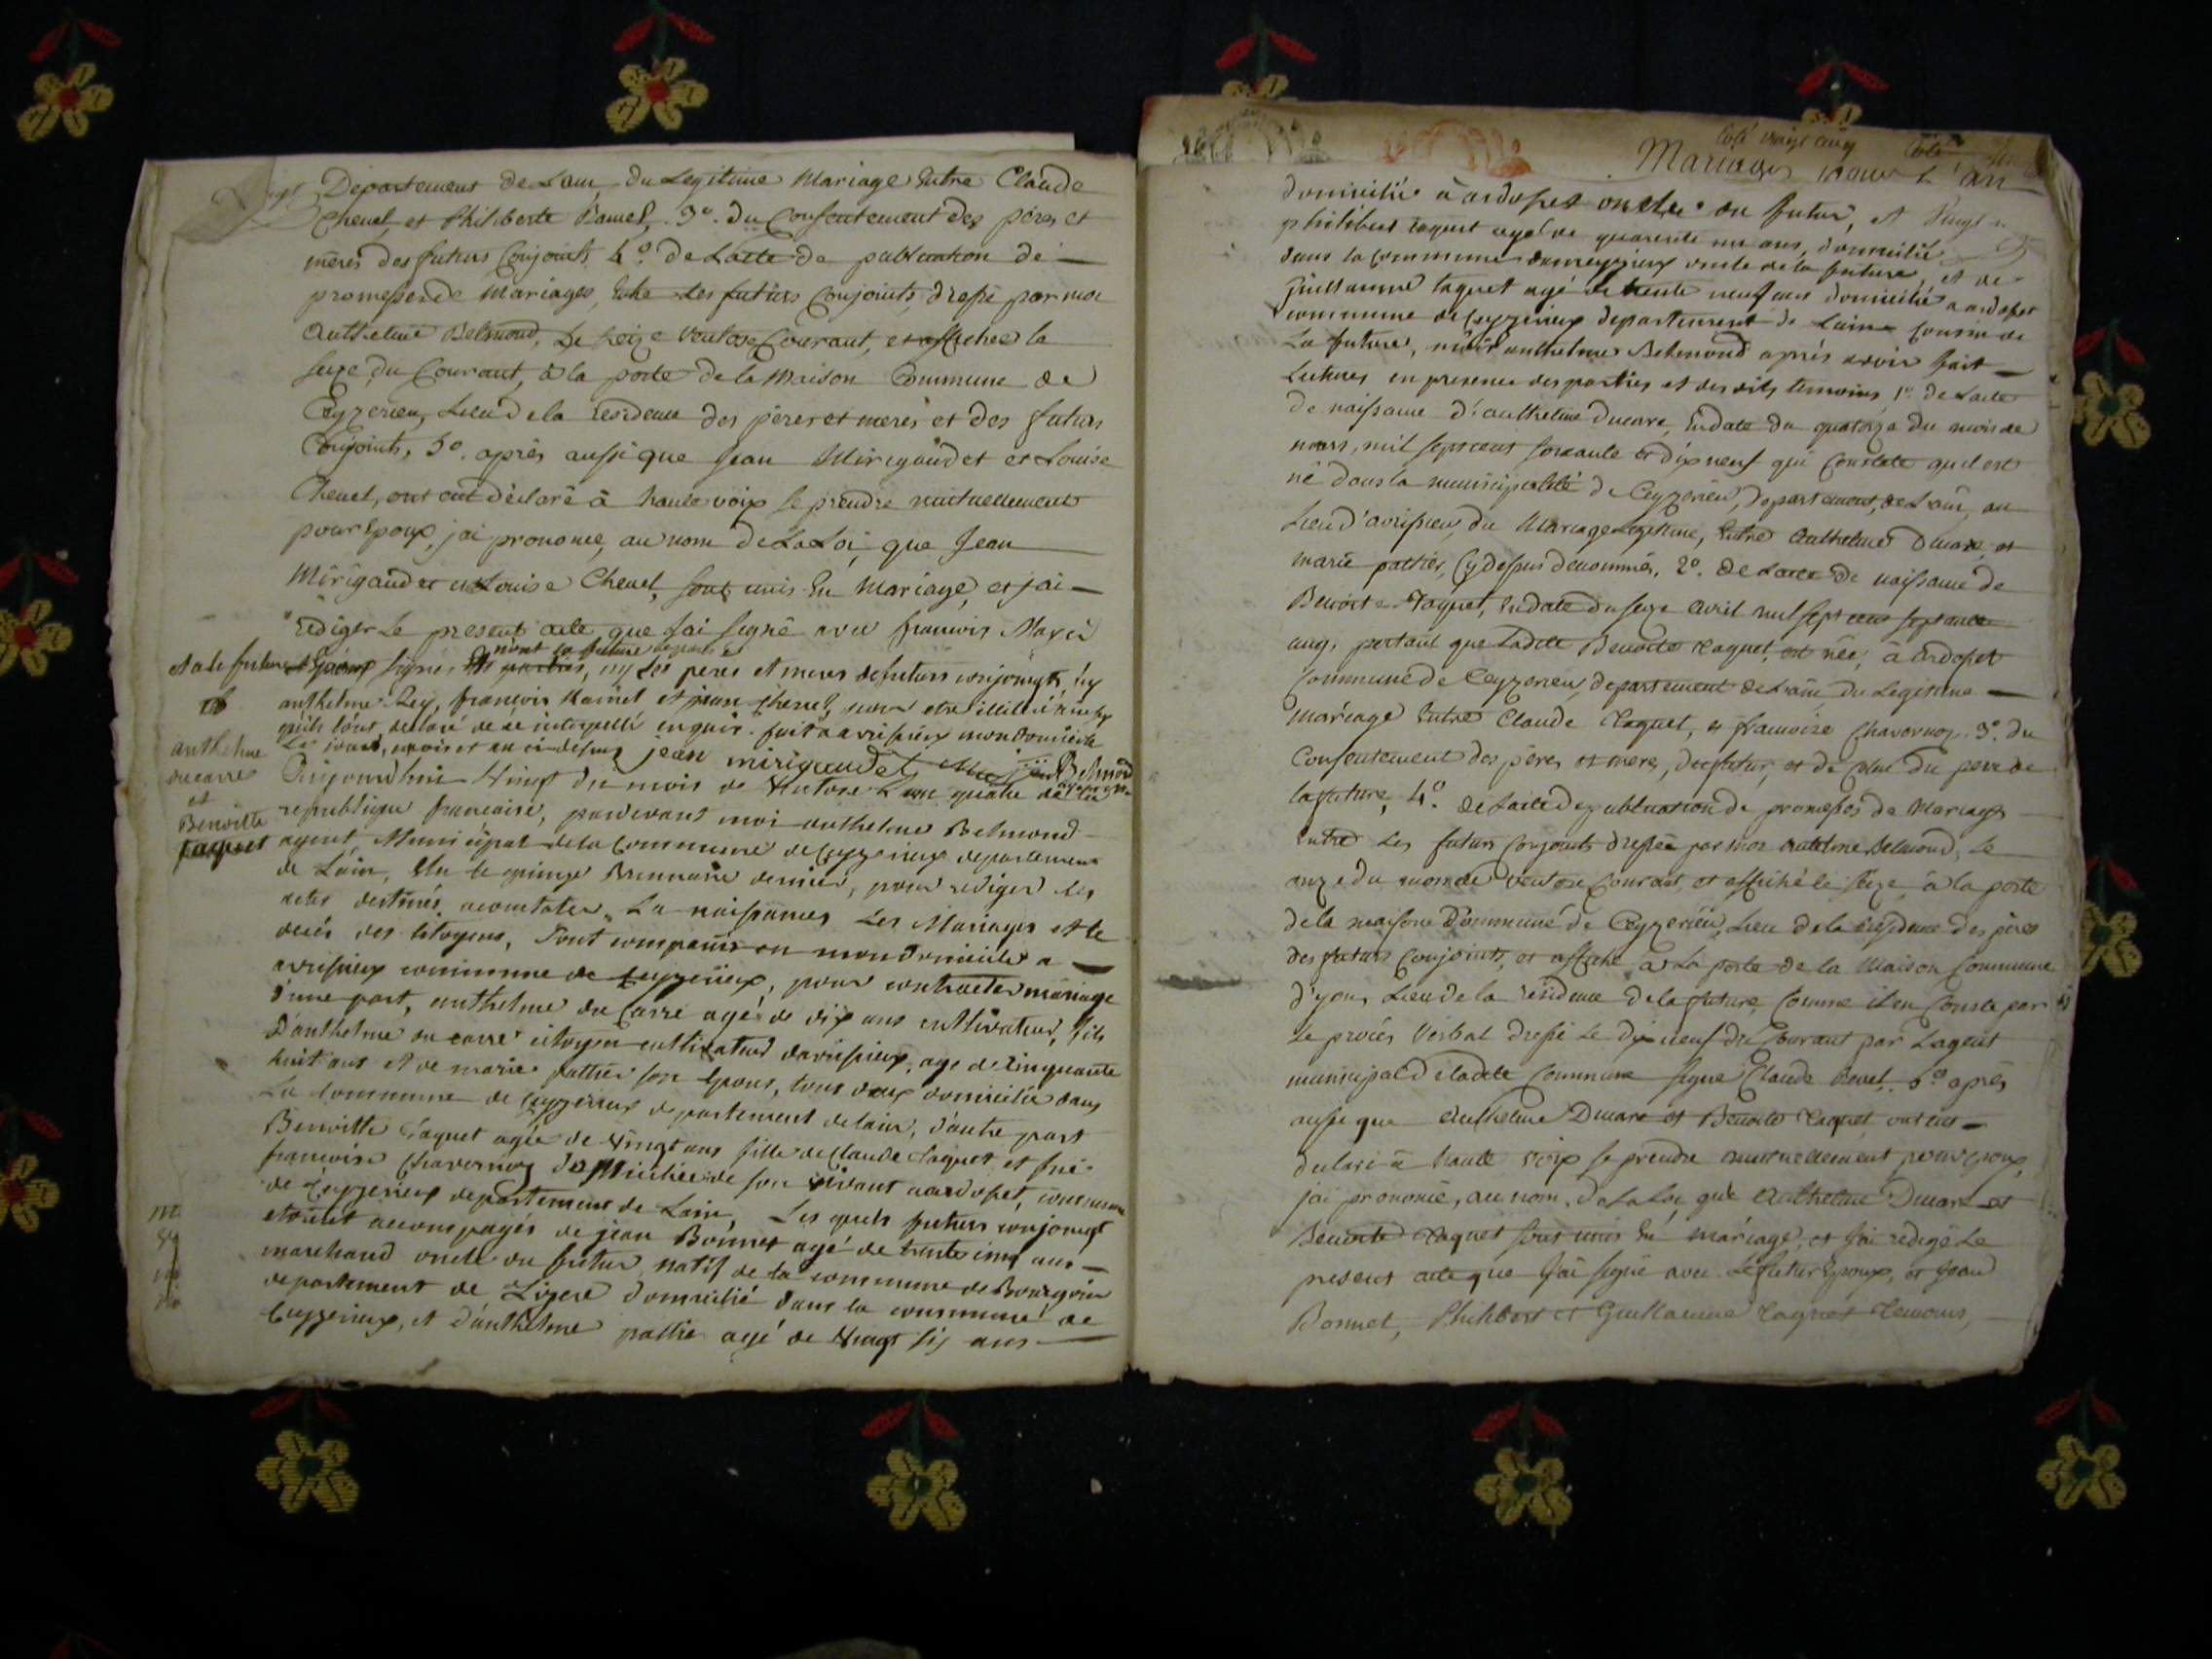 Departement de Lain, du Legitime Mariage Entre Claude
Chenel, et Philiberte Ramel, 3º. du Consentement des péres et
méres des futurs Conjoints, 4º. de Lacte de publication de
promesses de Mariages, Entre les futurs Conjoints, dressé par moi
Anthelme Belmond, Le seize Ventose Courant, et affichée le
seize du Courant, à la porte de la Maison Commune de
Ceyzerieu, Lieu de la Residence des péres et meres et des futurs
Conjoints, 5º. aprés aussi que Jean Mirigaudet et Louise
Chenel, ont eut déclaré à haute voix se prendre mutuellement
pour Epoux, j'ai prononcé, au nom de La Loi, que Jean
Mirigaudet et Louise Chenel, sont unis En Mariage, et j'ai
Rédiger Le present acte que J'ai signé avec francois
signer ny les peres et meres de futurs conjoingts, ny
anthelme Rey, francois Ramel et jean chenel,
qu'ils l'ont declaré de ce interpellé enquis. fait a avrissieux mon domicile
Les jours, mois et an ci-dessus jean mirigaudet Belmond
anthelme
ducarre
et
Benoitte
taquet
Aujourdhui Vingt du mois de Ventose Lan quatre de la
republique francaise, pardevant moi anthelme Belmond
agent Municipal de la Commune de Ceyzerieux departement
de Lain, Elu le quinze Brumaire dernier, pour rediger les
actes destinés a constater La naissances Les Mariages et le
decés des Citoyens, Sont comparus en mon domicile a
avrissieux commune de Ceyzerieux, pour contracter mariage
d'une part, anthelme du Carre agé de dix ans cultivateur, fils
D'anthelme du carre citoyen cultivateur davrissieux, age de Cinquante
huit ans et de marie pattier son Epous, tous deux domiciliés dans
La commune de Ceyzerieux departement delain, d'autre part
Benoitte Taquet agée de Vingt ans fille de Claude Taquet et fue
francoise Chavernoz domiciliée de son vivant a ardosset, commune
de Ceyzerieux departement de Lain, Les quels futurs conjoingt
etoient accompagés de jean Bonnet agé de trente cinq ans
marchand oncle du futur natif de la commune de Bourgoin
departement de Lizere domicilié dans la commune de
Ceyzerieux, et d'anthelme pattier agé de Vingt six ans
Coté vingt cinq
Mariages pour L'an
domicilié à ardosset oncle du futur, et
philibert taquet agé de quarente un ans, domicilié
dans la Commune oncle de la future, et de
Guillaume taquet agé de trente neuf ans domicilié a ardosset
commune de Ceyzerieux departement de Lain Cousin de
La future, moi anthelme Belmond aprés avoir fait
Lectures en presence des parties et des dits temoins, 1º. de Lacte
de naissance d'anthelme Ducare, En date du quatorze du mois de
mars, mil sept cent soixante et dix neuf qui Constate qu'il est
né dans la municipalité de Ceyzerieu, Departement de Lain, au
Lieu d'avrissieu, du Mariage Legitime, Entre Anthelme Ducare, et
marie pattier, Cy dessus denommés. 2º. de Lacte de naissance de
Benoite Taquet, En date du seize Avril mil sept cent septante
cinq, portant que Ladite Benoite taquet, est née, à ardosset
Commune de Ceyzerieu, departement de Lain, du Legitime
Mariage Entre Claude Taquet, et francoise Chavornoz. 3º. du
Consentement des péres et mere, du futur, et de Celui du pere de
la future, 4º. de Lacte de publication de promesses de Mariage
Entre Les futurs Conjoints dressée par moi Anthelme Belmond, Le
onze du mois de Ventose Courant, et affiché le seize à la porte
de la maison Commune de Ceyzerieu, Lieu de la Residence des péres
des futurs Conjoints, et affiché à La porte de la Maison Commune
d'yon, Lieu de la residence de la future, Comme il en Conste par
Le procés Verbal dressé Le dix neuf du Courant par L'agent
municipal de ladite Commune signé Claude 5º. aprés
aussi que Anthelme Ducare et Benoite Taquet ont eut
declaré à haute voix se prendre mutuellement pour Epoux,
j'ai prononcé, au nom de La Loi, que Anthelme Ducare et
Benoite Taquet sont unis En mariage, et j'ai redigé Le
present acte que J'ai signé avec Le futur Epoux, et Jean
Bonnet, Philibert et Guillaume Taquet Temoins,